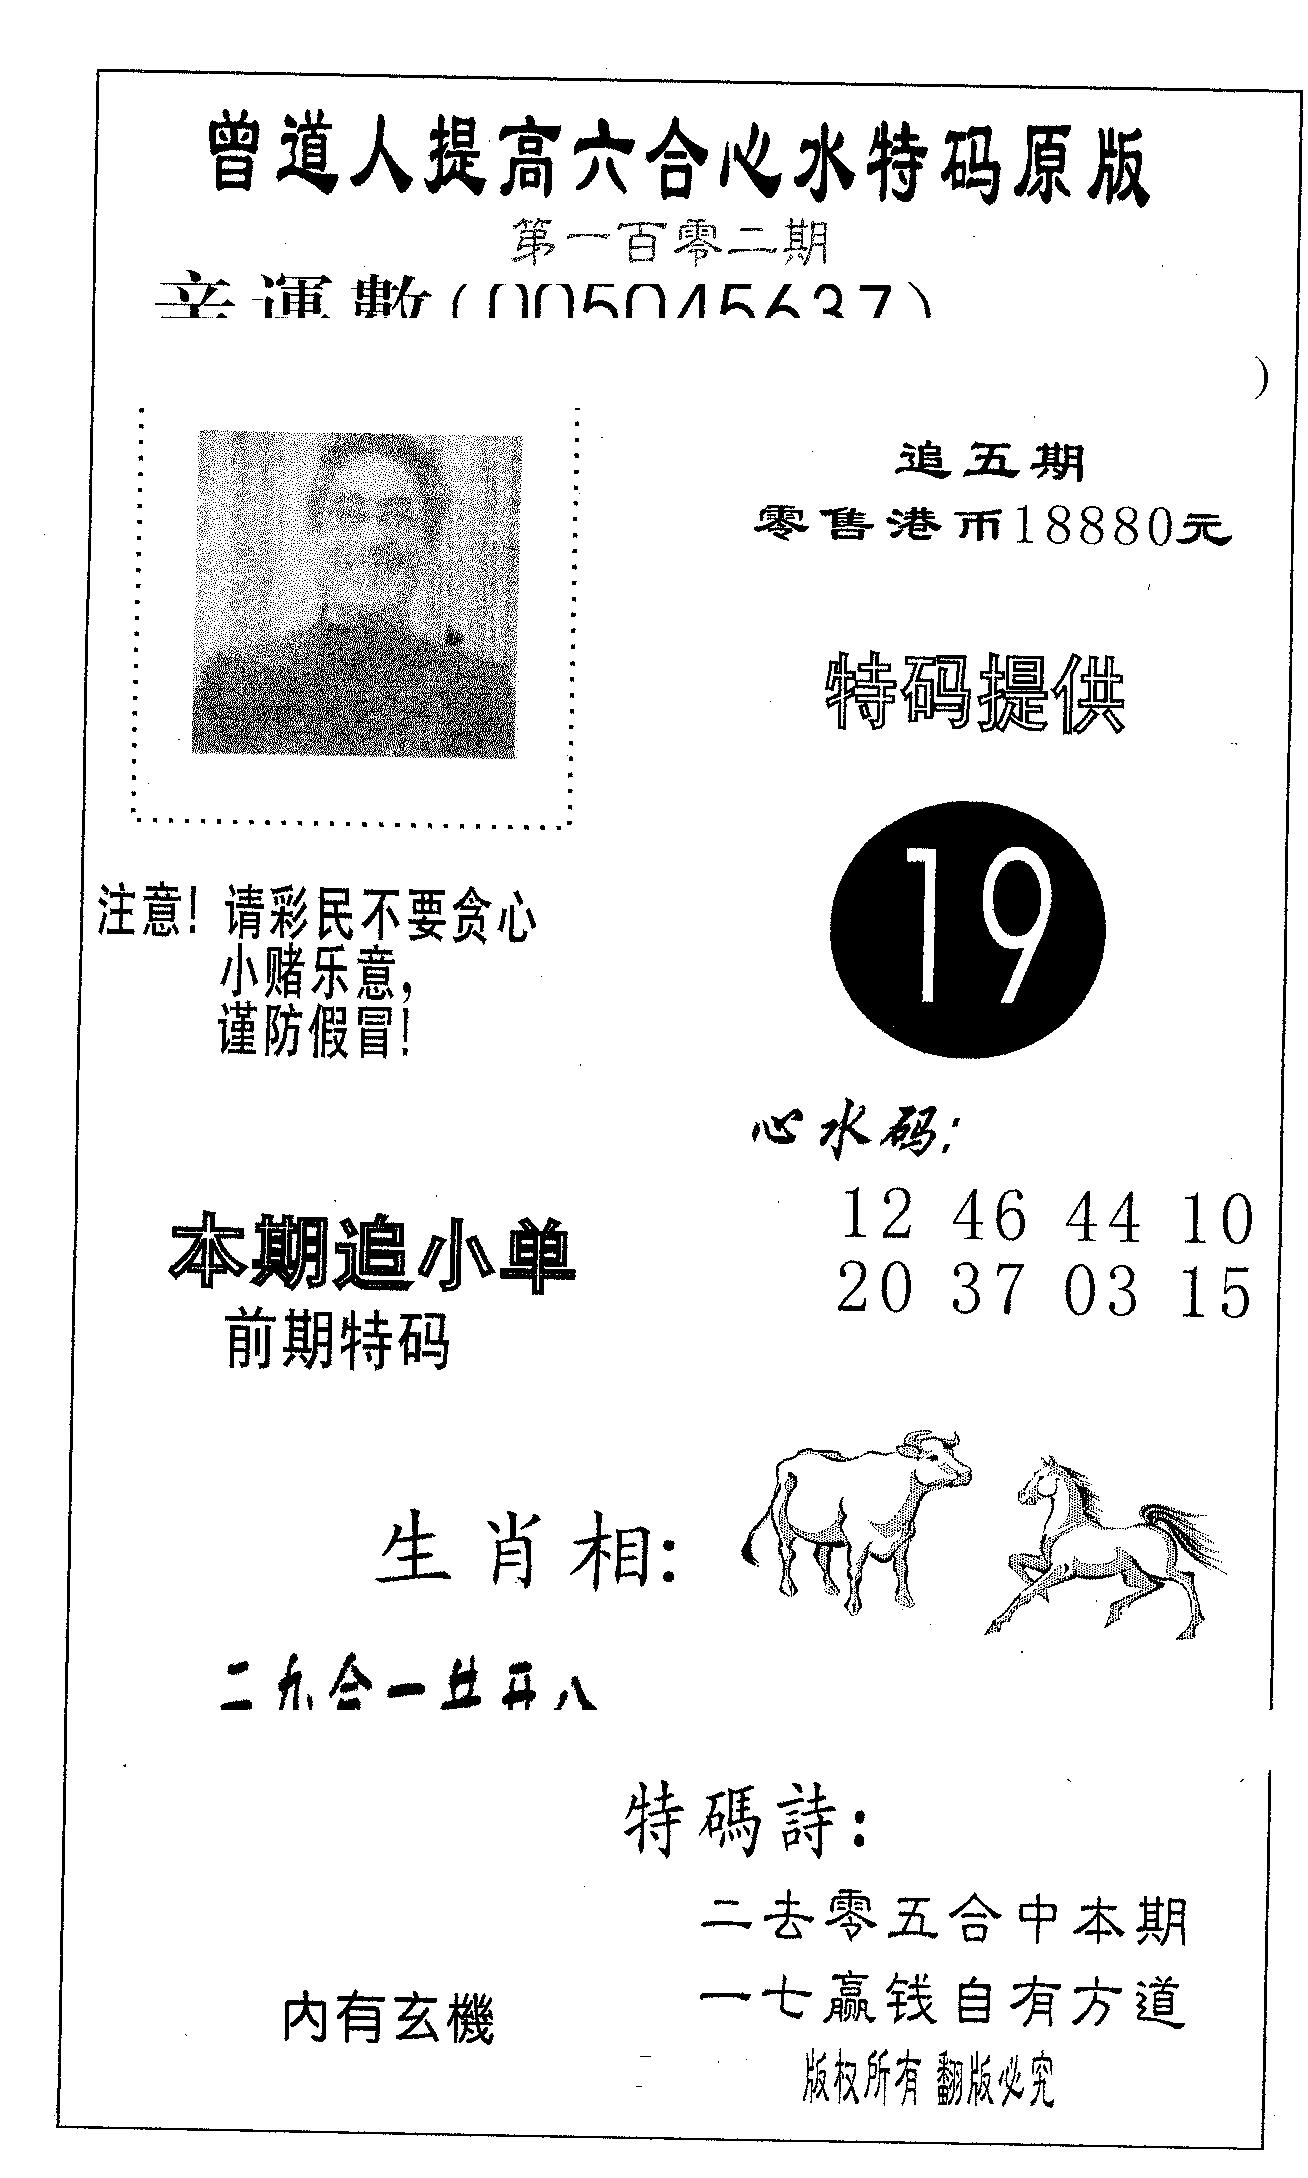 曾道人提高六合心水特码原版
第一百零二期
幸運數(005045637)
)
追五期
零售港币18880元
特码提供
19
注意! 请彩民不要贪心
小赌乐意,
谨防假冒!
心水码:
12 46 44 10
20 37 03 15
本期追小单
前期特码
生肖相:
二九合一
特碼詩:
二去零五合中本期
一七赢钱自有方道
内有玄機
版权所有 翻版必究